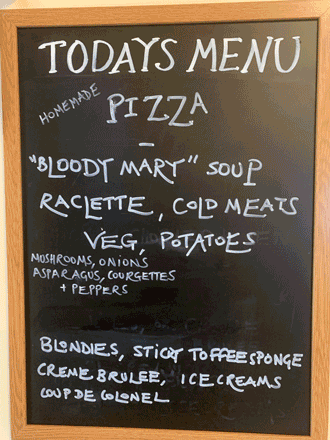 TODAYS MENU
HOMEMADE PIZZA
-
"BLOODY MARY" SOUP
RACLETTE, COLD MEATS
VEG, POTATOES
MUSHROOMS, ONIONS
ASPARAGUS, COURGETTES
+ PEPPERS
BLONDIES, STICKY TOFFEE SPONGE
CREME BRULEE, ICE CREAMS
COUP DE COLONEL